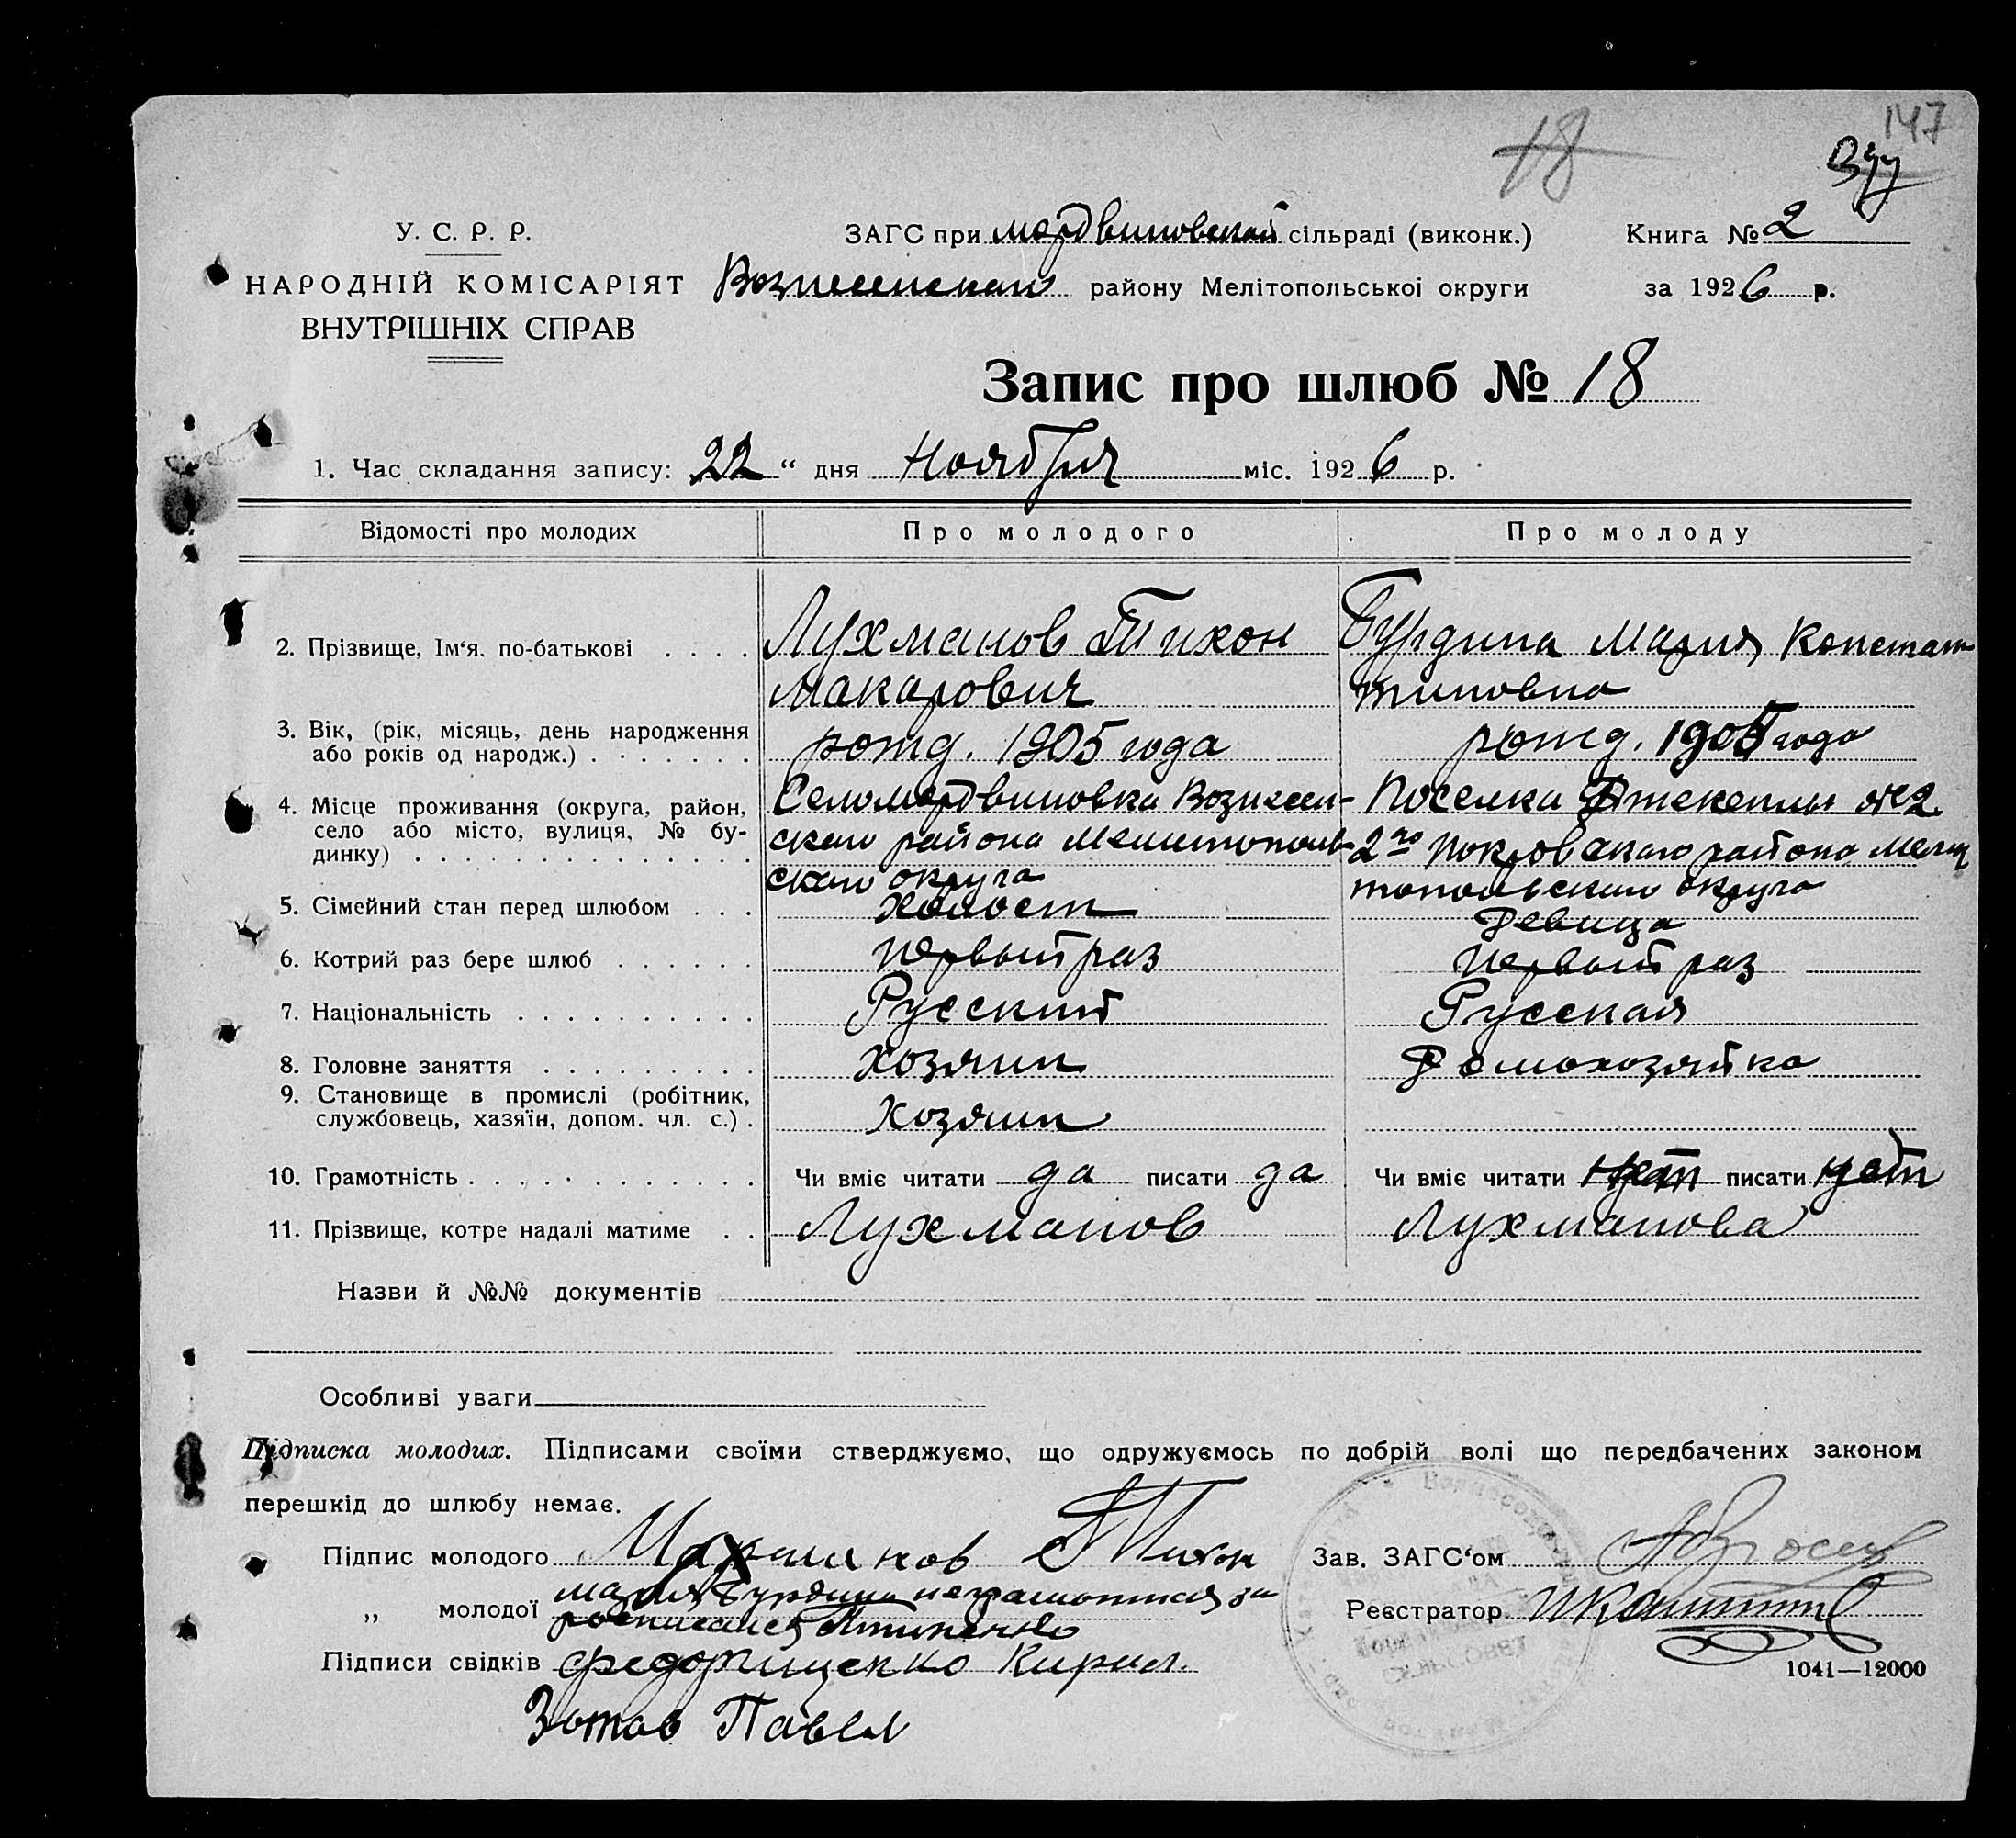 147
18
У. С. Р. Р.
НАРОДНІЙ КОМІСАРІЯТ
ВНУТРІШНІХ СПРАВ
ЗАГС при мордвиновской сільраді (виконк.)
Вознесенскаго району Мелітопольськоі округи
Книга № 2
за 1926 р.
Запис про шлюб № 18
1. Час складання запису: 22 “ дня Ноября міс. 1926 р.
Відомості про молодих Про молодого Про молоду
2. Прізвище, Ім‘я. по-батькові . . . . Лухманов Тихон Бурдина Мария Констан
Макарович тиновна
3. Вік, (рік, місяць, день народження
або років од народж.) . . . . . . . рожд. 1905 года рожд. 1905 года
4. Місце проживання (округа, район, Село мордвиновка Вознесен- Поселка №2
село або місто, вулиця, № бу- скаго района Мелитополь- 2го Покровскаго района Мели
динку) . . . . . . . . . . . . . . скаго округа топольскаго округа
5. Сімейний стан перед шлюбом . . . холост Девица
6. Котрий раз бере шлюб . . . . . . первый раз первый раз
7. Національність . . . . . . . . . . Русский Русская
8. Головне заняття . . . . . . . . . хозяин Домохозяйка
9. Становище в промислі (робітник,
службовець, хазяїн, допом. чл. с.) . хозяин
10. Грамотність . . . . . . . . . . . . Чи вміє читати да писати да Чи вміє читати нет писати нет
11. Прізвище, котре надалі матиме . . Лухманов Лухманова
Назви й №№ документів
Особливі уваги
Підписка молодих. Підписами своїми стверджуємо, що одружуємось по добрій волі що передбачених законом
перешкід до шлюбу немає.
Підпис молодого Тихон Зав. ЗАГС‘ом
Мария Бурдина неграмотная за
„ молодої росписался Реєстратор
Підписи свідків Федорищенко Кирил.
1041—12000
Зотов Павел